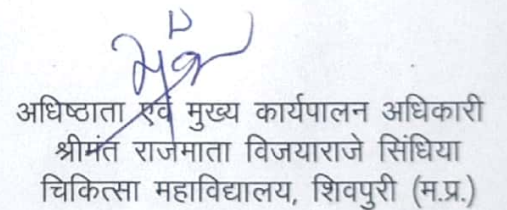 अधिष्ठाता एवं मुख्य कार्यपालन अधिकारी
श्रीमंत राजमाता विजयाराजे सिंधिया
चिकित्सा महाविद्यालय, शिवपुरी (म.प्र.)